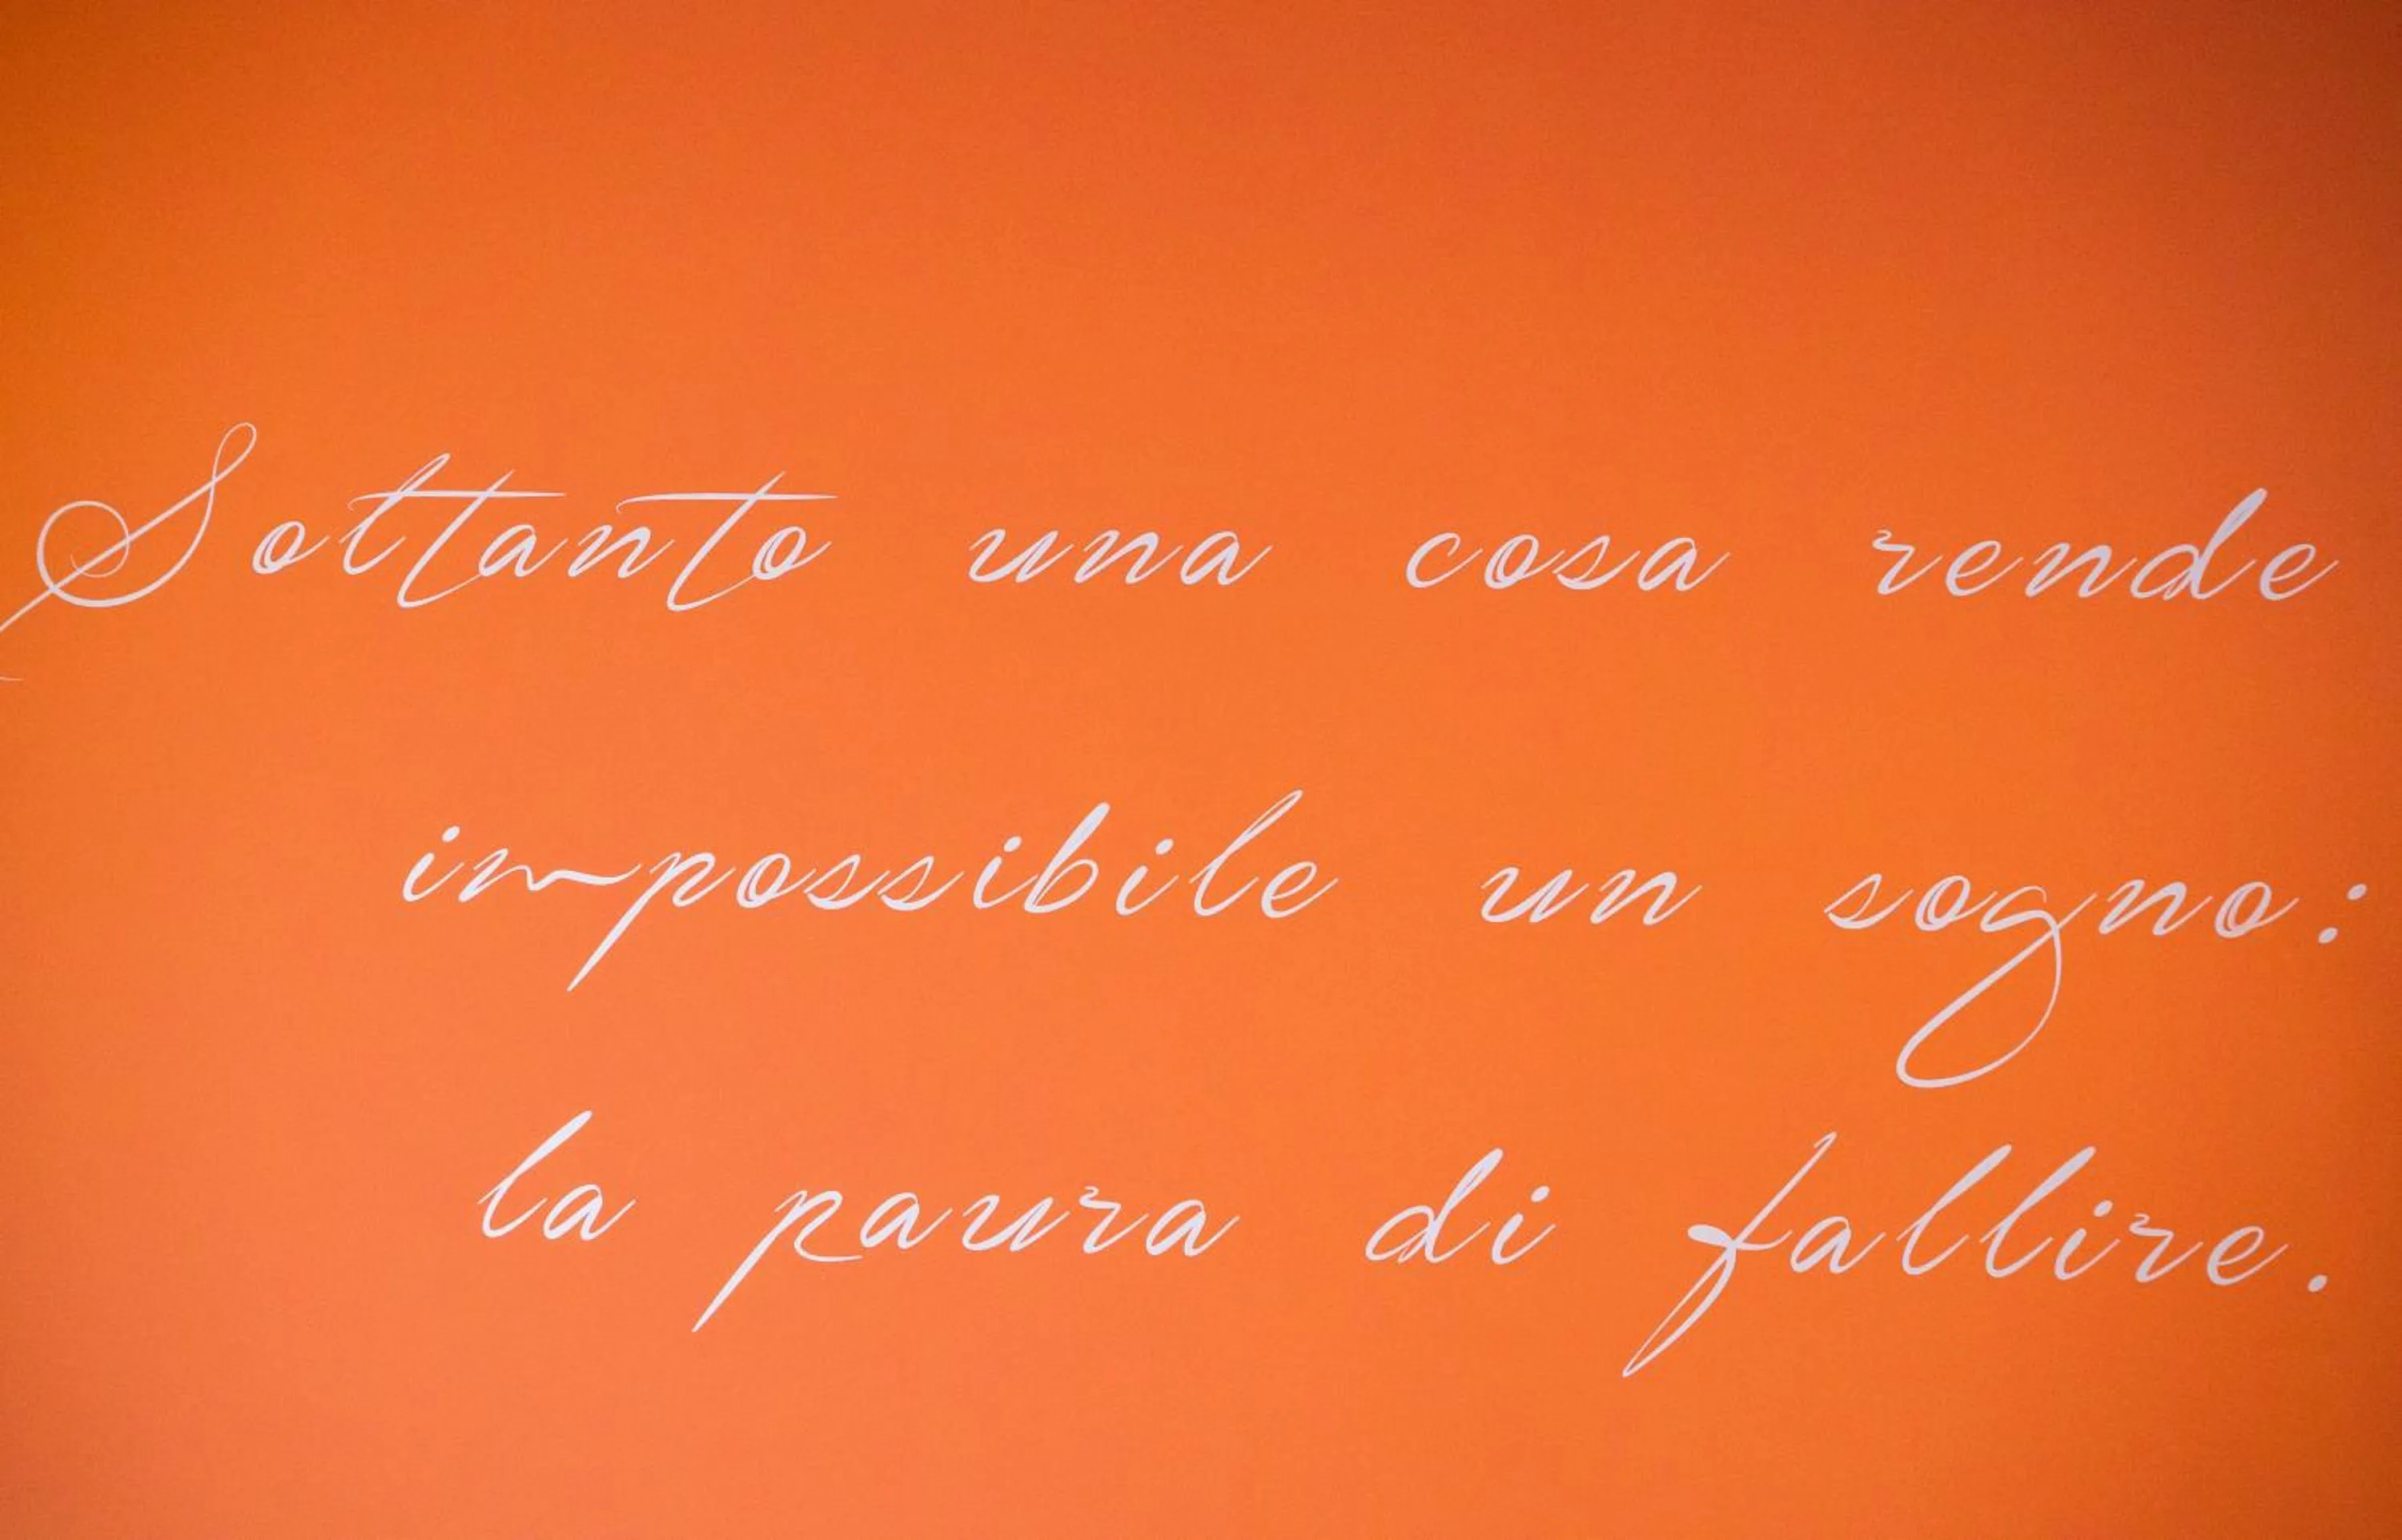 Soltanto una cosa rende
impossibile un sogno:
la paura di fallire.